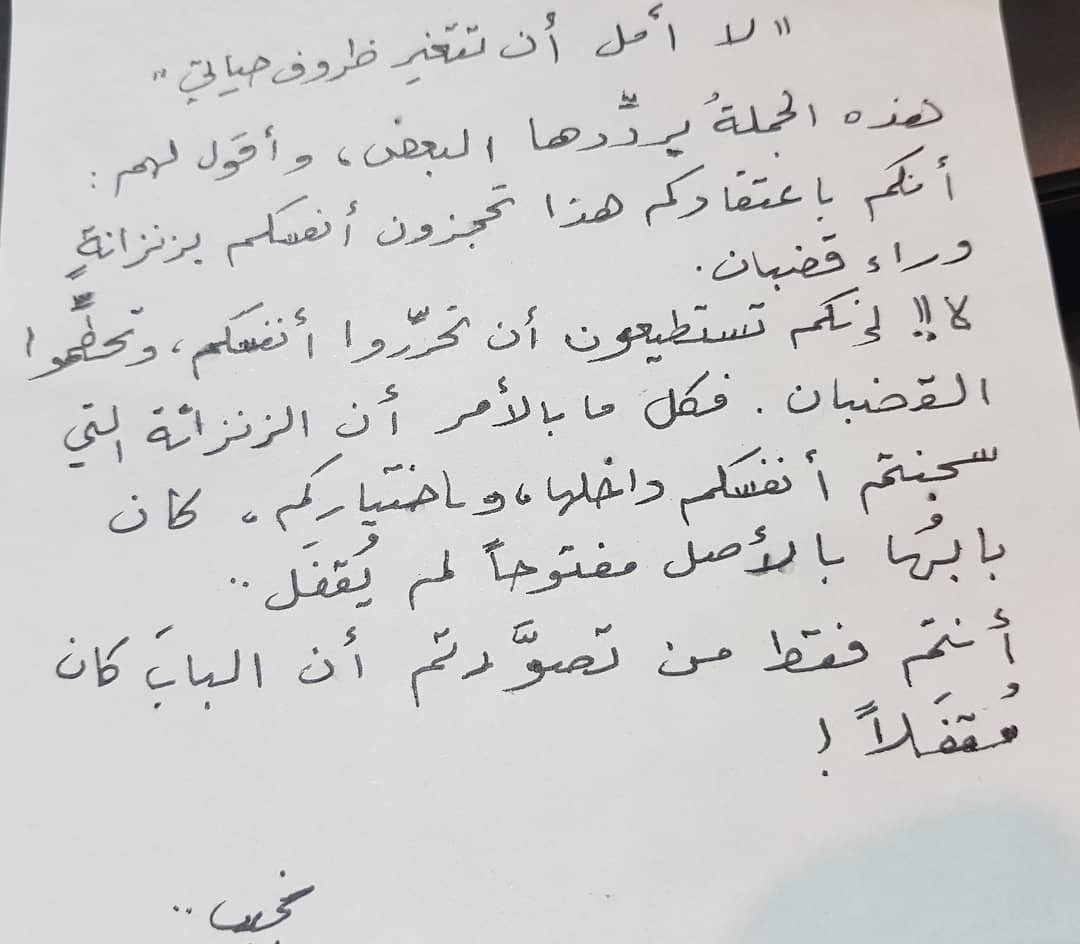 "لا أمل أن تتغير ظروف حياتي"
هذه الجملةُ يردِّدها البعض، وأقول لهم :
أنكم باعتقادكم هذا تحجزون أنفسكم بزنزانةٍ
وراء قضبان.
لا!! إنكم تستطيعون أن تحرّروا أنفسكم، وتحطِّموا
القضبان. فكل ما بالأمر أن الزنزانة التي
سجنتم أنفسكم داخلها، وباختياركم، كان
بابُها بالأصل مفتوحاً لم يُقفَل..
أنتم فقط من تصوَّرتم أن البابَ كان
مُقفَلاً !